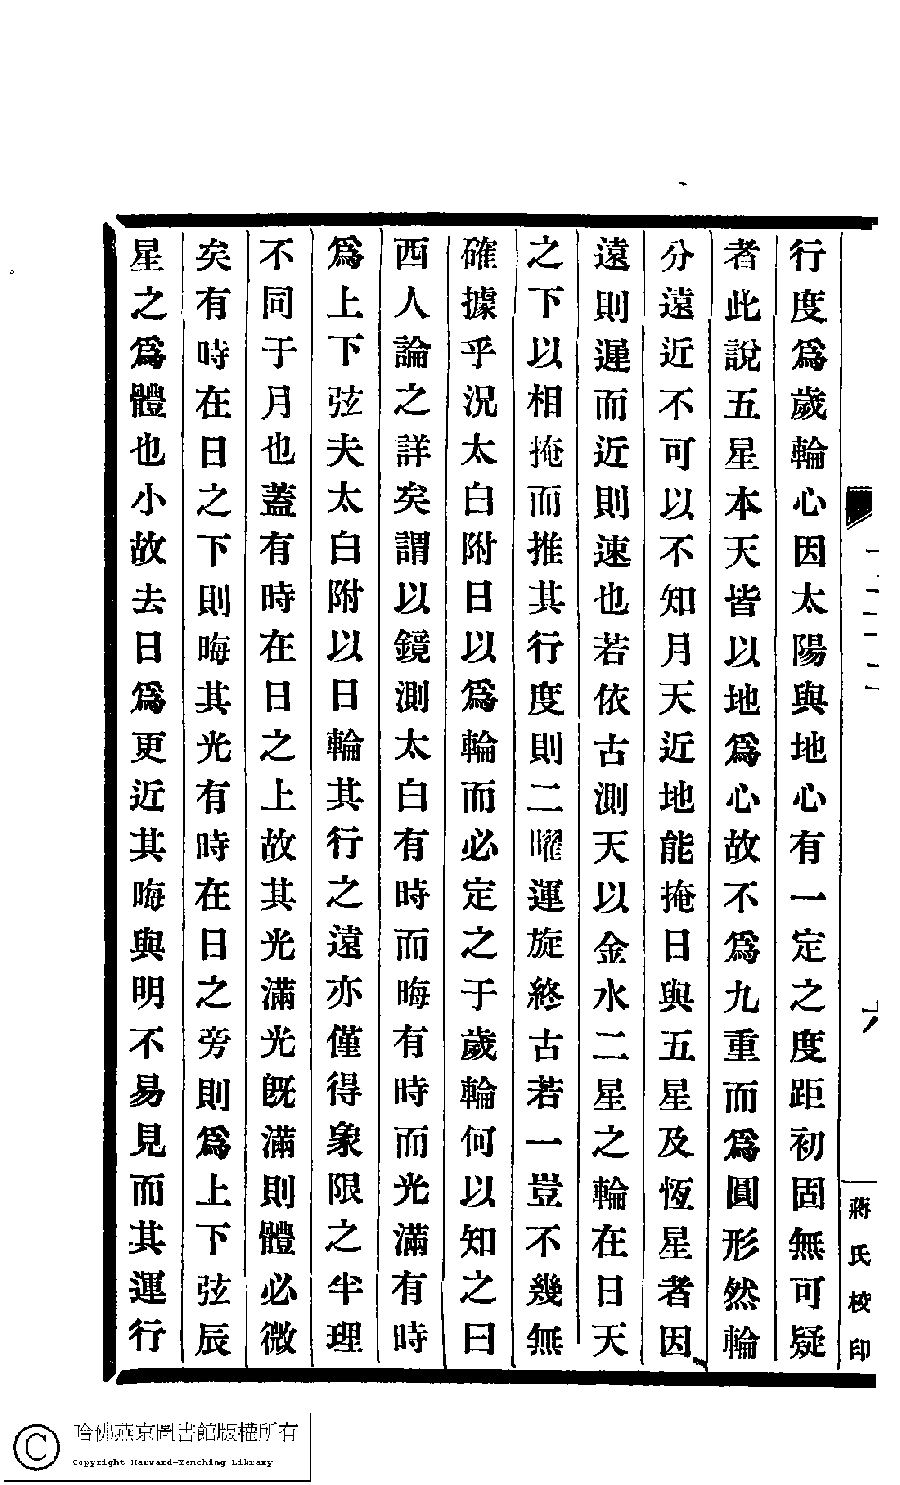 行度爲歲輪心因太陽與地心有一定之度距初固無可疑
者此說五星本天皆以地爲心故不爲九重而爲圓形然輪
分遠近不可以不知月天近地能掩日與五星及恆星者因
遠則遲而近則速也若依古測天以金水二星之輪在日天
之下以相掩而推其行度則二曜運旋終古若一豈不幾無
確據乎況太白附日以爲輪而必定之于歲輪何以知之曰
西人論之詳矣謂以鏡測太白有時而晦有時而光滿有時
爲上下弦夫太白附以日輪其行之遠亦僅得象限之半理
不同于月也蓋有時在日之上故其光滿光旣滿則體必微
矣有時在日之下則晦其光有時在日之旁則爲上下弦辰
星之爲體也小故去日爲更近其晦與明不易見而其運行
蔣氏校印
哈佛燕京圖書館版權所有
Copyright Harvard-Yenching Library